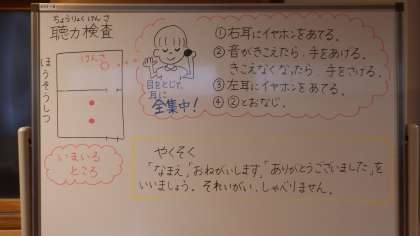 ちょうりょくけんさ
聴力検査
けんさ
ほうそうしつ
いまいる
ところ
目をとじて、
耳に
全集中！
①右耳にイヤホンをあてる。
②音がきこえたら、手をあげる。
きこえなくなったら、手をさげる。
③左耳にイヤホンをあてる。
④②とおなじ。
やくそく
「なまえ」「おねがいします」「ありがとうございました」を
いいましょう。それいがい、しゃべりません。